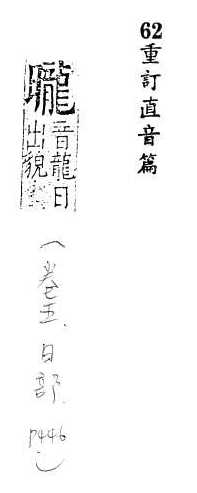 62重訂直音篇
曨
音龍日
出貌
(卷五、日部、P446)